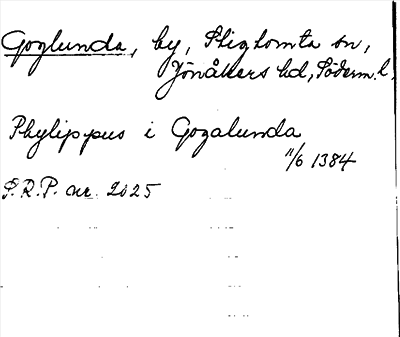 Goglunda, by, Stigtomta sn,
Jönåkers hd, Söderm. l.
Phylippus i Gogalunda
11/6 1384
S.R.P. nr. 2025